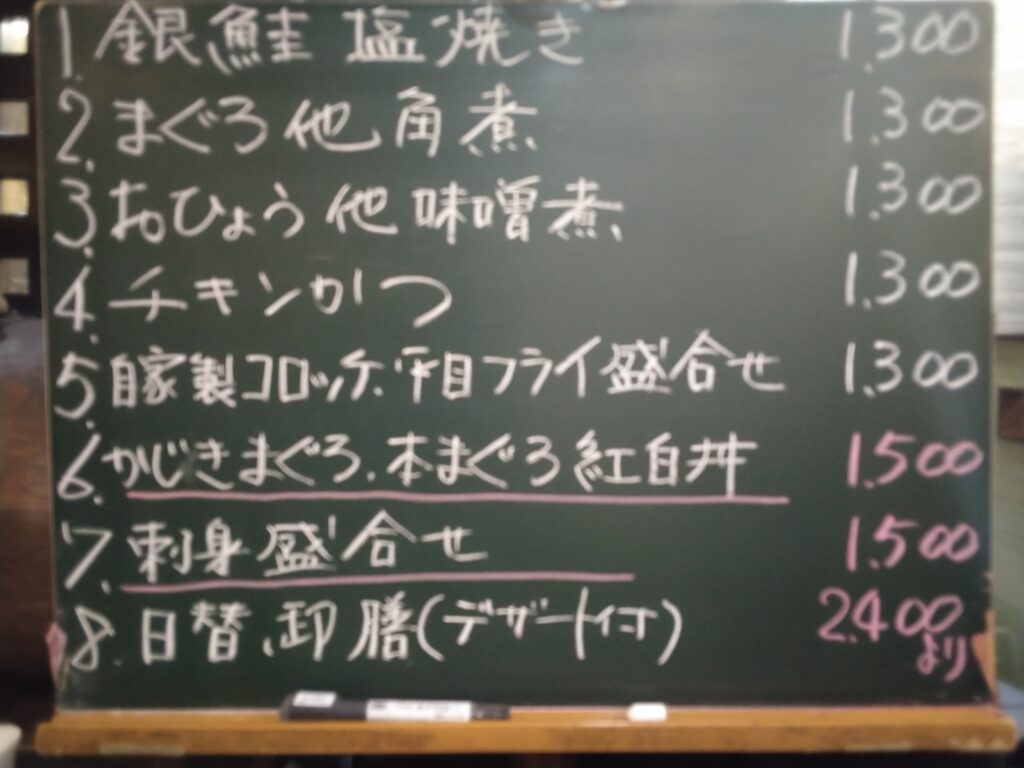 1. 銀鮭 塩焼き 1.300
2. まぐろ他角煮 1.300
3. おひょう他味噌煮 1.300
4. チキンかつ 1.300
5. 自家製コロッケ、平目フライ盛合せ 1.300
6. かじきまぐろ、本まぐろ紅白丼 1.500
7. 刺身盛合せ 1.500
8. 日替、御膳(デザート付) 2.400より